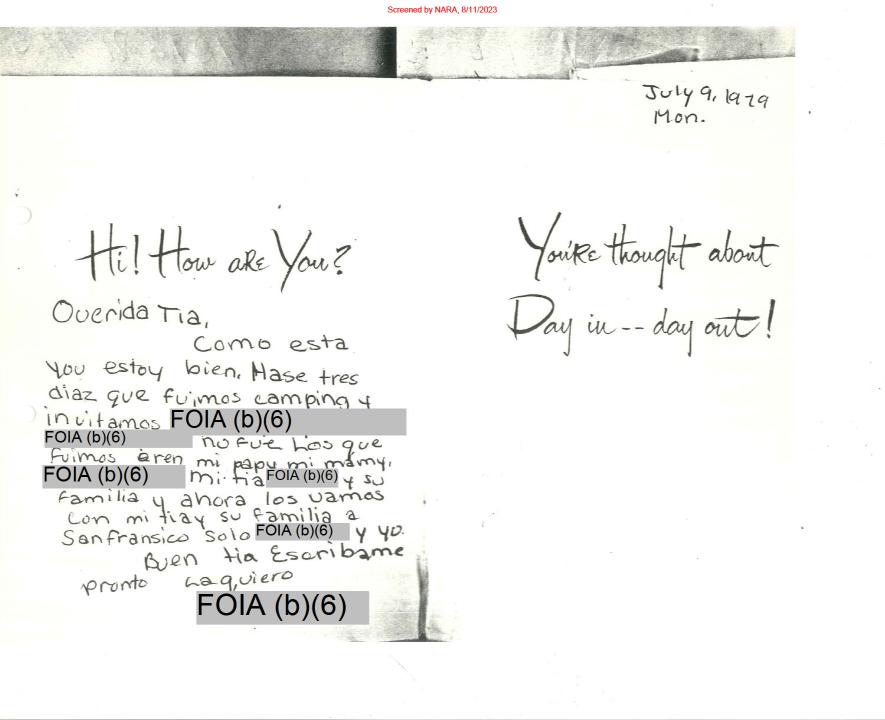 Screened by NARA, 8/11/2023
July 9, 1979
Mon.
Hi! How are You?
Querida Tia,
Como esta
You estoy bien. Hase tres
diaz que fuimos camping y
invitamos FOIA (b)(6)
FOIA (b)(6) no fue Los que
fuimos aren mi papy mi mamy,
FOIA (b)(6) mi tia FOIA (b)(6) y su
familia y ahora los vamos
con mi tia y su familia a
Sanfransico Solo FOIA (b)(6) y yo.
Buen tia Escribame
pronto La quiero
FOIA (b)(6)
You're thought about
Day in -- day out!